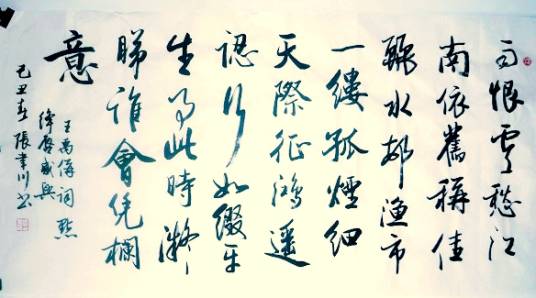 雨恨雲愁江
南依舊稱佳
麗水邨漁市
一縷孤煙細
天際征鴻遥
認行如綴平
生事此時凝
睇誰會凭欄
意
王禹偁词點
絳唇感興
己丑春張川书